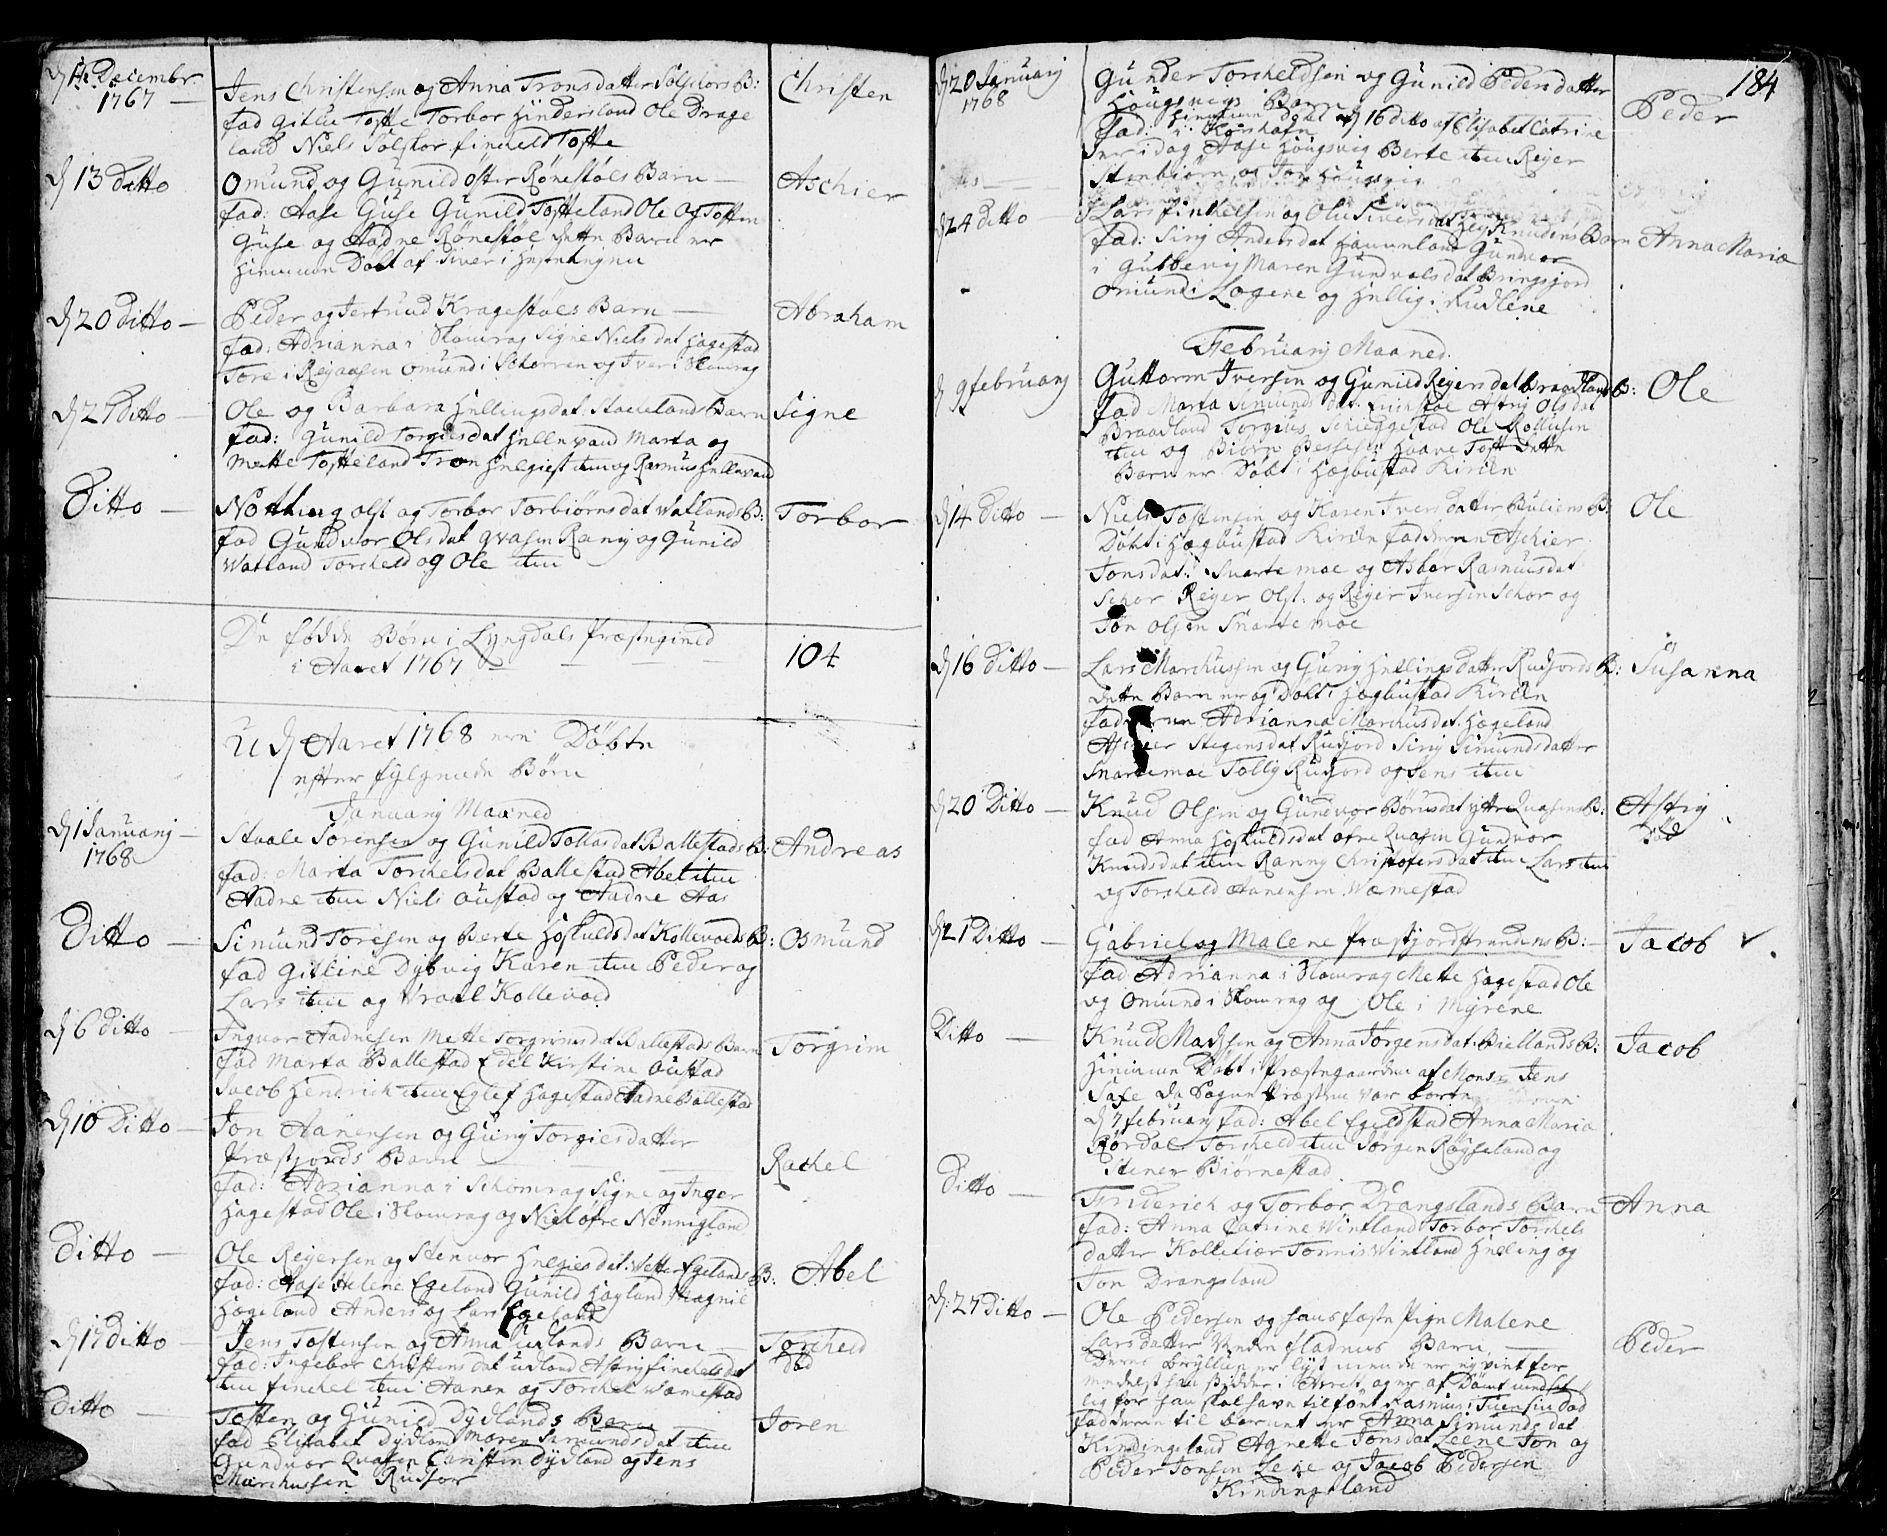 d 12 Decembr.
1767 —
Jens Christensen og Anna Tronsdatter Solschors B:
fad Gitlee Tofte Torbor Hindersland Ole Drage
land Niels Solskor finkeld Tofte
Christen
d 13 ditto
Omund og Gunild öster Rönestöls Barn —
fad: Aase Guse Gunild Tofteland Ole og Tosten
Guse og Aadne Rönestöl dette Barn er
hiemme Döbt af Iver i
Aschier
d 20 ditto —
Peder og Jertrud Kragestöls Barn —
fad: Adrianna i Skomrag Signe Niels dat Hagestad
Tore i Reyaasen Omund i Schorren og Iver i Skomrag
Abraham
d 27 ditto
Ole og Barbara Hellingsdat. Stoeelands Barn
fad: Gunild Torgiersdat Hellevand Marta og
Mette Tofteland Tron Helgiest item og Rasmus Hellevand
Signe
Ditto —
Notthug Ols: og Torbor Torbiörnsdat Watlands B:
fad Gundvor Olsdat Qvasen Rany og Gunild
Watland Torcheld og Ole item
Torbor
De födde Börn i Lyngdals Præstegield
i Aaret 1767 — — —
104
U d Aaret 1768 ere Döbte
efterfylgende Börn
Januarij Maaned
d 1 Januarij —
1768
Staale Sorensen og Gunild Tollasdat Ballestads B:
fad: Marta Torchelsdat Ballestad Abel item
Aadne item Niels Oustad og Aadne Aas
Andreas
Ditto —
Simund Toresen og Berte Hoskuldsdat Kollevolds B:
fad Gitline Dybvig Karen item Peder og
Lars item og Wraal Kollevold
Osmund
d 6 ditto —
Ingvor Aadnesen Mette Torgrimsdat Ballestads Barn
fad Marta Ballestad Edel Kirstine Oustad
Jacob Hendrich item Eglef Hagestad Aadne Ballestad
Torgrim
d 10 Ditto —
Jon Aanensen og Guri Torgiersdatter
Præstfjords Barn — — —
fad: Adrianna i Schomrag Signe og Inger
Hagestad Ole i Skomrag og Niels öfre Nönnigland
Rachel
Ditto —
Ole Reyersen og Stenvor Helgiesdat: Wetter Egelands B:
fad: Aase Helene Egeland Gunild Högland Magnil
Hægeland Anders og Lars Egeland
Abel
d 17 ditto —
Jens Tostensen og Anna Udlands Barn —
fad: Ingebor Christensdat Udland Astri Finkelsdat
item finkel item Aanen og Torchel Wamestad
Torcheld
död
Ditto —
Tosten og Gunild Dydlands Barn
fad Elisabet Dydland Maren Simundsdat item
Gundvor Qvasen Christen Dydland og Jens
Marchussen Rudjor
Joren
184
d 20 Januarij
1768
Gunder Torcheldsen og Gunild Pedersdatter
Hougsvigs Barn
hiemme Döbt d 16 ditto af Elisabet Catrine
fad: i Korshafn
Iver idag Aase Hougsvig Berte item Reyer
Stenbiörn og Jon Hougsvig
Peder
d 24 ditto —
Lars finkelsen og Oli Siversdat Hey Knudens Barn
fad: Siri Andersdat Hauneland Gundvor
i Gulberg Maren Gundvalsdat Bringsjord
Omund i Lögene og Hellig i Rudlene
Anna Maria
Februarij Maaned.
d 9 februarij
Guttorm Iversen og Gunild Reyersdat Braadlands B:
fad Marta Simundsdat. Astri Olsdat
Braadland Torgius Schieggestad Ole Rollvsen
item og Biörn Bessesen Haane Toft dette
Barn er Döbt i Hægbustad Kircken
Ole
d 14 ditto —
Niels Tostensen og Karen Iversdatter Buliens B:
Döbt i Hægbustad Kircken fadderne Aschier
Tonsdat: Snartemoe og Asbor Rasmusdat
Schor Reyer Ols: og Reyer Iversen Schor og
Jon Olsen Snartemoe
Ole
d 16 ditto —
Lars Marchussen og Guri Hellingsdatter Rudjords B:
dette Barn er og Döbt i Hægbustad Kircken
fadderne Adrianna Marchusdat. Hægeland
Aschier Stegensdat Rudjord Siri Simundsdatter
Snartemoe Tollef Rudjord og Jens item
Susanna
d 20 Ditto —
Knud Olsen og Gundvor Börresdat yttre Qvasens B:
fad Anna Hoskuldsdat öfre Qvasen Gundvor
Knudsdat item Ranny Christofersdat item Lars item
og Torcheld Aanensen Wæmestad
Astrig
död
d 21 Ditto —
Gabriel og Malene Præstjordstrandens B: —
fad Adrianna i Skomrag Mette Hagestad Ole
og Omund i Skomrag og Ole i Myrene
Jacob
Ditto —
Knud Madsen og Anna Jörgensdat. Biellands B:
hiemme Döbt i Præstegaarden af Mons: Jens
Safe da Sogne Præsten var borte
d 7 februarij fad: Abel Egelstad Anna Maria
Rördal Torcheld item Jörgen Röyseland og
Stener Biörnestad
Jacob
Ditto —
Friderich og Torbor Drangslands Barn
fad: Anna Catrine Wintland Torbor Torchels
datter Kolletiær Tönnis Wintland Helling og
Jon Drangsland
Anna
d. 27 Ditto —
Ole Pedersen og hans fæste Pige Malene
Larsdatter Westen fladnes Barn. —
fadderne til barnet er Anna Simundsdat
Kindingeland Agnette Jonsdat Leene Jon og
Peder Jonsen Lene og Jacob Pedersen
Kindingsland
Peder